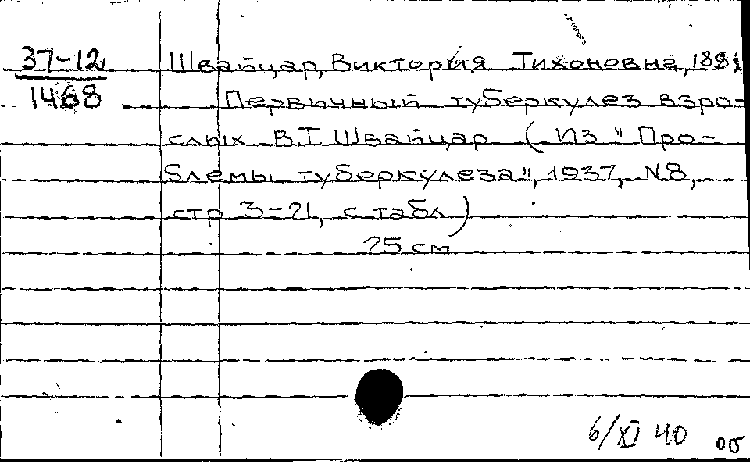 37-12
1468
Швайцар, Виктория Тихоновна,
Первичный туберкулез взро-
слых В.Т. Швайцар (Из "Про-
блемы туберкулеза", 1937, N8,
стр 3-21, с табл)
25 см
6/XI 40